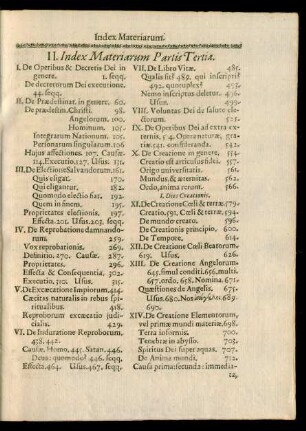 Index Materiarum.
II. Index Materiarum Partis Tertiæ.
I. De Operibus & Decretis Dei in
genere. 1. seqq.
De decretorum Dei executione.
44. seqq.
II. De Prædestinat. in genere. 60.
De prædestin. Christi. 98.
Angelorum. 100.
Hominum. 105.
Integrarum Nationum. 105.
Personarum singularum 106
Hujus affectiones. 107. Causæ.
114. Executio. 127. Usus. 131.
III. De Electione Salvandorum. 161.
Qui eligat. 170.
Qui eligantur. 182.
Quomodo electio fiat. 192.
Quem in finem. 195.
Proprietates electionis. 197.
Effecta. 201. Usus. 205. seqq.
IV. De Reprobatione damnandorum.
259.
Vox reprobationis. 269.
Definitio. 270. Causæ. 287.
Proprietates. 296.
Effecta & Consequentia, 302.
Executio, 310. Usus. 315.
V. De Excæcatione Impiorum, 414.
Cæcitas naturalis in rebus spiritualibus.
418.
Reproborum excæcatio judicialis.
429.
VI. De Induratione Reproborum,
438. 442.
Causæ. Homo, 445. Satan. 446.
Deus: quomodo? 446. seqq.
Effecta. 464. Usus. 467. seqq.
VII. De Libro Vitæ. 485.
Qualis sit? 489. qui inscripti?
492. quotuplex? 495.
Nemo inscriptus deletur. 496.
Usus. 499.
VIII. Voluntas Dei de salute electorum.
IX. De Operibus Dei ad extra externis,
X. De Creatione in genere.
Creatio est articulus fidei.
Origo universitatis.
Mundus, & æternitas.
Ordo, anima rerum. 566.
I. Dies Creationis.
XI. De Creatione Cœli & terræ. 579.
Creatio, 591. Cœli & terræ, 594.
De mundo creato. 596.
De Creationis principio, 600.
De Tempore. 614.
XII. De Creatione Cœli Beatorum.
619. Usus, 626.
XIII. De Creatione Angelorum.
645. simul conditi. 656. multi.
657. ordo. 658. Nomina. 671.
Quæstiones de Angelis. 675.
690.
XIV. De Creatione Elementorum,
vel primæ mundi materiæ, 698.
Terra informis. 700.
Tenebræ in abysso. 703.
Spiritus Dei super aquas. 707.
De Anima mundi. 712.
Causa prima secunda: immedia-
ta,